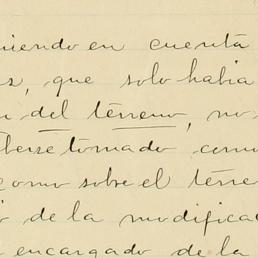 niendo en cuenta
s, que solo habia
n del térreno, no
berse tomado como
como sobre el térre
de la modifica
encargado de la